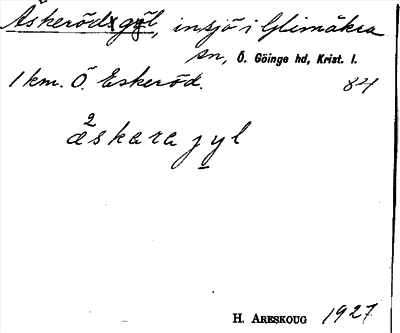 Äskeröds göl, insjö i Glimåkra
sn, Ö. Göinge hd, Krist. l.
1 km. Ö. Eskeröd. 84
2
äskara jyl
H. ARESKOUG 1927